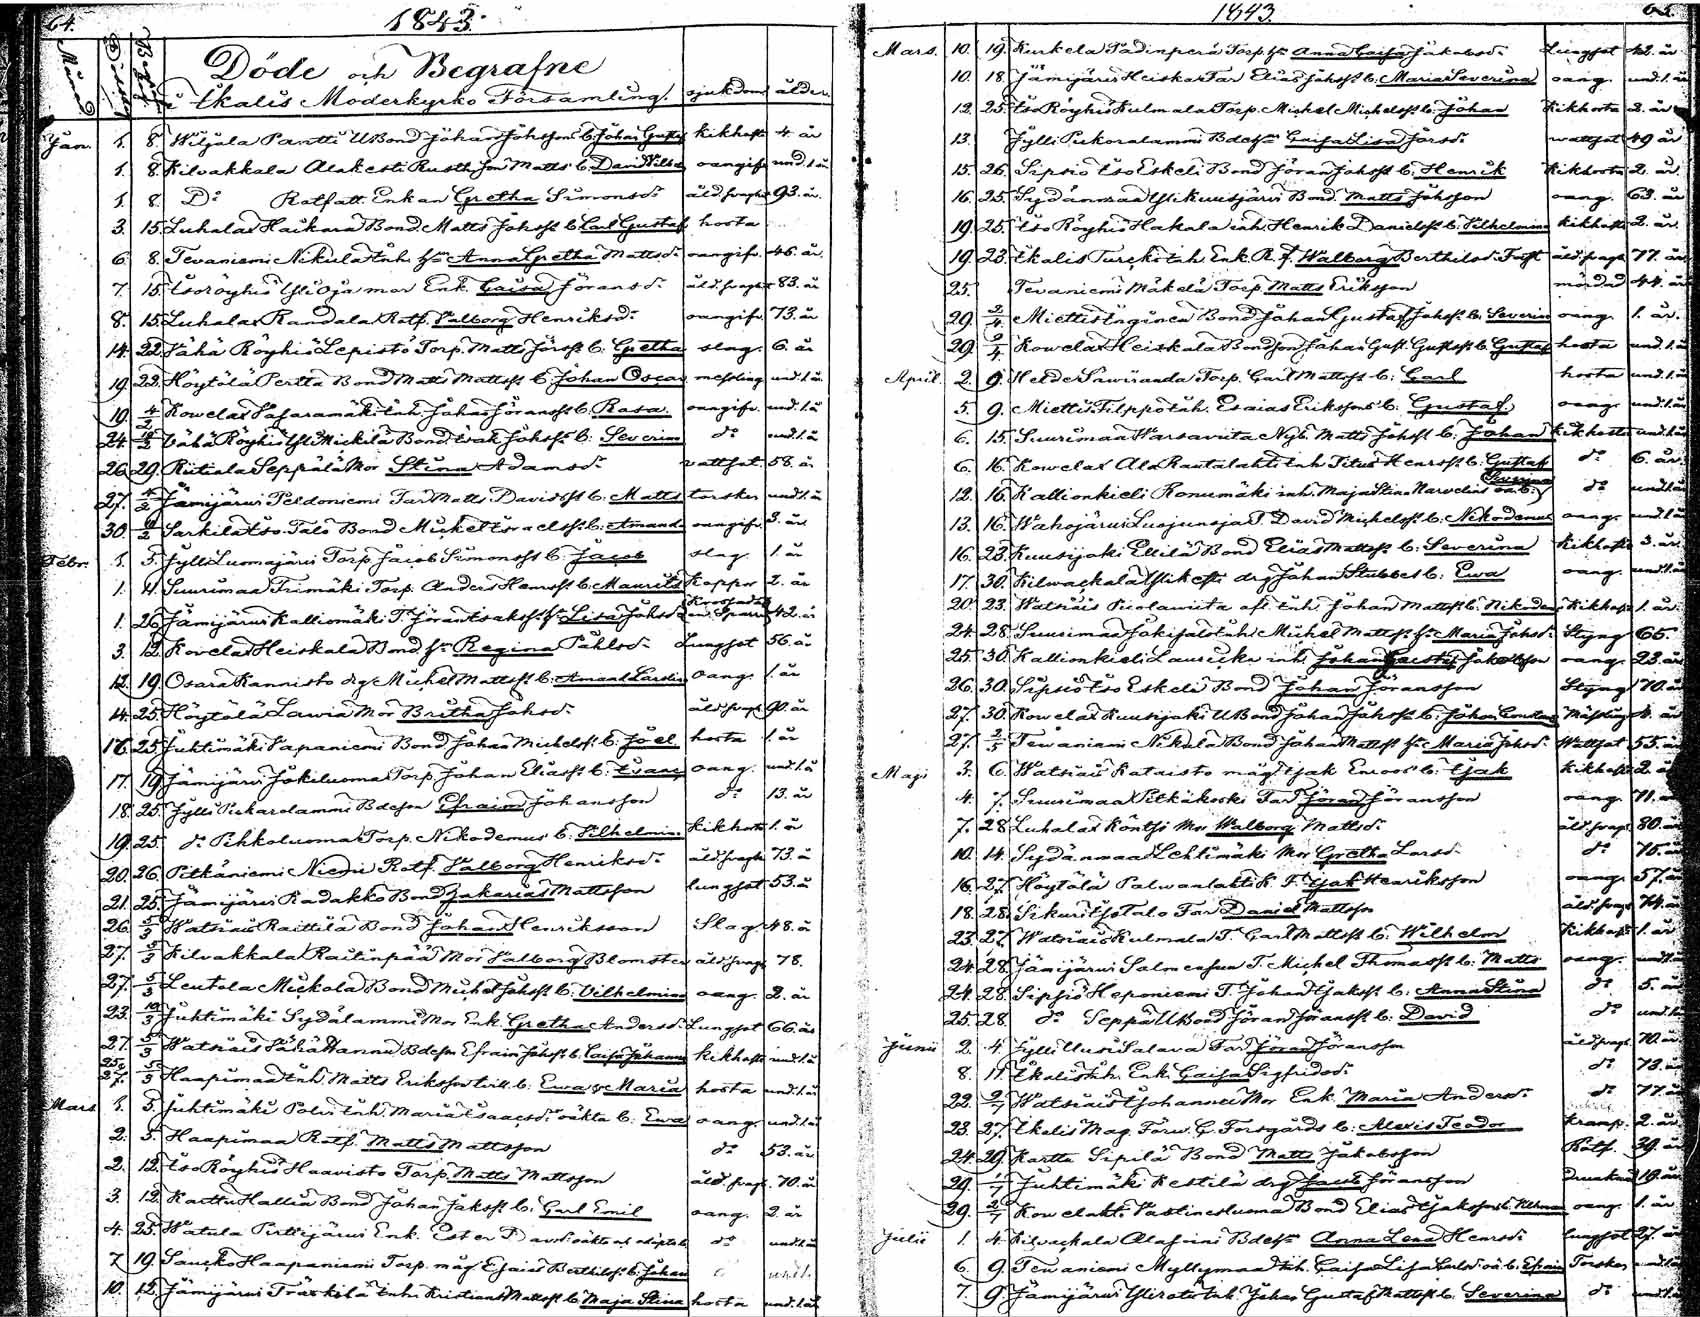 64. 1843.
Månad Döde Begrafne
Döde och Begrafne
i Ikalis Moderkyrko Församling. sjukdom ålder.
Jan. 1. 8. Wiljala Pantti UBond Johan Johssons b. Johan Gustaf kikhosta 4 år
1. 8. Kilvakkala Alakesti Rusth. Son Matts b. oangifv. und. 1. år
1. 8. D:o Rotfatt. Enkan Gretha Simonsd:r åld.svaght 93. år
3. 15. Luhalax Haikara Bond. Matts Johss b. Carl Gustaf hosta
6. 8. Tevaniemi Nikula Inh. h:u Anna Gretha Mattsd:r oangifv. 46. år.
7. 15. Isoröyhiö Yli Oja mor Enk. Caisa Jöransd:r åld.svaght 83. år
8. 15. Luhalax Randala Rotf. Valborg Henriksd:r oangifv. 73. år
14. 22. Vähä Röyhiö Lepistö Torp. Matts Jörss. b. Gretha slag. 6. år
19. 22. Höytölä Pertta Bond Matts Mattss b. Johan Oscar messling und. 1. år.
19. 4/2 Kowelax Safaramäki Inh. Johan Jöranss b. Rosa oangifv. und. 1. år
24. Vähä Röyhiö Yli Mickilä Bond. Isak Johss. b. Severin d:o und. 1. år
26. 29. Riitiala Seppälä Mor Stina Adamsd:r vattsot. 58. år
27. Jämijärvi Peldoniemi Far Matts Davidss b. Matts torsken und. 1. år
30. Sarkila Iso Talo Bond Michel Israelss. b. Amanda oangifv. 3. år
Febr. 1. 5. Jylli Luomajärvi Torp. Jacob Simonss b. Jacob slag. 1. år
1. 4. Suurimaa Trimäki Torp. Anders Henrss b. Maurits Koppor 2. år
1. 26. Jämijärvi Kalliomäki T. Jöran Isakss. h:u Lisa Johsd:r 42. år
3. 12. Kovelax Heiskala Bond h:u Regina Påhlsd:r Lungsot 56. år
12. 19. Osara Kannisto drg Michel Mattss b. oang. 1. år
14. 25. Höytölä Lawia Mor Britha Johsd:r åld.svagh 90. år
16. 25. Juhtimäki Papaniemi Bond Johan Michelss. b. Joel hosta 1. år
17. 19. Jämijärvi Jokiluoma Torp. Johan Eliass b. Evars oang. und. 1. år
18. 25. Jylli Piskarolammi Bdeson Efraim Johansson d:o 13. år
19. 25. d:o Pihkoluoma Torp. Nikodemus b. Vilhelmin. kikhosta 1. år
20. 26. Pitkäniemi Niemi Rotf. Valborg Henriksd:r åld.svagh 73. år
21. 25. Jämijärvi Kadakko Bond Zakarias Mattsson lungsot 53. å
26. 5/3 Watsiais Raittila Bond Johan Henriksson Slag 48. år
27. 5/3 Kilvakkala Raitinpää Mor Valborg Blomster åld.svagh 78.
27. 5/3 Leutola Mickola Bond Michel Johss. b. Vilhelmina oang. 2. år
22. Juhtimäki Sydälammi Mor Enk. Gretha Andersd:r Lungsot 66. år
27. 5/3 Watsiais Vähä Hannu Bdeson Efraim Johss. b. Caisa Johanna kikhosta und. 1. år
25 & 27. 5/3 Haapimaa Inh. Matts Eriksson tvill. b. Ewa & Maria hosta und. 1. år
Mars 1. 5. Juhtimäki Polvi Inh. Maria Isaacsd:r oäkta b. Ewa oang. und. 1. år
2. 5. Haapimaa Rotf. Matts Mattsson d:o 53. år
2. 12. Iso Röyhiö Haavisto Torp. Matts Mattsson åld.svagh. 70. år
3. 12. Karttu Hallia Bond Johan Jakss b. Carl Emil oang. 2. år
4. 25. Watula Pirttijärvi Enk. Ester Davdr oäkta d:o und. 1. år
7. 19. Sancko Haapaniemi Torp. måg Esaias Berthilss. b. Johan und. 1.
10. 12. Jämijärvi Träskilä Inh. Kristian Mattss b. Maja Stina hosta und. 1. år
1843. 65.
Mars. 10. 19. Kurkela Sadinperä Torp. h:u Anna Caisa Jakobsd:r Lungsot 42. år
10. 18. Jämijärvi Heiska Far Elias Johss b. Maria Severina oang. und. 1. år
12. 25. Iso Röyhiö Kulmala Torp. Michel Michelss b. Johan Kikhosta 2. år
13. Jylli Piskorolammi Bdeh:u Caisa Lisa Jörsd:r wattsot 49 år
15. 26. Sipsiö Iso Eskeli Bond Jöran Johss b. Henrik Kikhosta 2. år.
16. 25. Sydänmaa Yli Kuusjärvi Bond. Matts Johsson oang. 63. år
19. 25. Iso Röyhiö Hakala inh. Henrik Danielss b. Vilhelmina kikhosta 2. år.
19. 23. Ikalis Turcki Inh. Enk. R. f. Walborg Berthilsd:r åld.svagh. 77. år
25. Tevaniemi Mäkelä Torp. Matts Eriksson mördad 44. år
29. 2/4 Miettis Inginen Bond Johan Gustaf Johss. b. Severin oang. 1. år.
29. 2/4 Kowelax Heiskala Bondson Johan Gust. Gustss b. Gustaf hosta und. 1. år
April. 2. 9. Heide Sawiranda Torp. Carl Mattss b. Carl hosta und. 1. år
5. 9. Miettis Filppo Inh. Esaias Erikssons b. Gustaf. oang. und. 1. år
6. 15. Suurimaa Warsaviita Nyb. Matts Johss b. Johan kikhosta und. 1. år
6. 16. Kowelax Ala Rautalahti Inh Titus Henrss b. Gustaf d:o 6. år.
12. 16. Kallionkieli Ronumäki inh. Maja Stina oä. b. Severina d:o und. 1. år
13. 16. Wahojärvi Luojunoja T. David Michelss. b. Nikodemus oang. und. 1. år
16. 23. Kuusijoki Ellilä Bond Elias Mattss. b. Severina kikhosta 3. år.
17. 30. Kilwackala Ylikesti drg Johan Stubbes b. Ewa oang. und. 1. år
20. 23. Watsiais Puolamiita afl. Inh. Johan Mattss. b. Nikodem kikhosta 1. år.
24. 28. Suurimaa Jokisalo Inh. Michel Mattss. h:u Maria Johsd:r Styng 65.
25. 30. Kallionkieli Lauseka inh. Johan Jakobsson oang. 23. år
26. 30. Sipsiö Iso Eskeli Bond Johan Jöransson Styng 70. år
27. 30. Kowelax Kuusijoki UBond Johan Johss. b. Johan Constan. Mässling 4. år
27. 2/5 Tewaniemi Nikula Bond Johan Mattss. h:u Maria Johsd:r Wattsot 55. år
Maji 3. 6. Watsiais Kataisto måg Isak Enroos b. Isak kikhosta 2. år
4. 7. Suurimaa Pitkäkoski Far Jöran Jöransson oang. 71. år
7. 28. Luhalax Köntsi Mor Walborg Mattsd:r åld.svagh. 80. år
10. 14. Sydänmaa Lehtimäki Mor Gretha Larsd:r d:o 75. år
16. 27. Höytölä Palwanlahti R. F. Isak Henriksson oang. 57. år
18. 28. Sikuri Iso Talo Far Daniel Mattsson åld.svagh 74. år
23. 27. Watsiais Kulmala T. Carl Mattss b. Wilhelm kikhosta 1. år
24. 28. Jämijärvi Salmensuu T. Michel Thomass b. Matts oang. und. 1. år
24. 28. Sipsiö Heponiemi T. Johan Isakss b. Anna Stina d:o 5. år
25. 28. d:o Seppä UBond Jöran Jöranss. b. David d:o und. 1. år
Junii 2. 4. Jylli Uusi Salava Far Jöran Jöransson åld.svagh. 70. år
8. 11. Ikalis Inh. Enk. Caisa Sigfridsd:r d:o 73. år
22. 2/7 Watsiais Isohannu Mor Enk. Maria Andersd:r d:o 77. år
23. 27. Ikalis Mag. Farw. G. Forsgårds b. Alexis Teodor kramp. 2. år
24. 29. Kartta Sipilä Bond Matts Jakobsson Rötf. 39. år
29. Juhtimäki Kestilä drg Jöransson drunknad 19. år
29. 2/7 Kowelahti Vastinesluoma Bond Elias Isakssons b. oang. 1. år
Julii 1. 4. Kilwackala Alafrini Bdeh:u Anna Lena Henrsd:r lungsot 27. år
6. 9. Tewaniemi Myllymaa Inh. Caisa Lisa oä. b. Efraim Torsken und. 1. år
7. 9. Jämijärvi Ylirotu Inh. Johan Gustaf Mattss b. Severina d:o und. 1. år